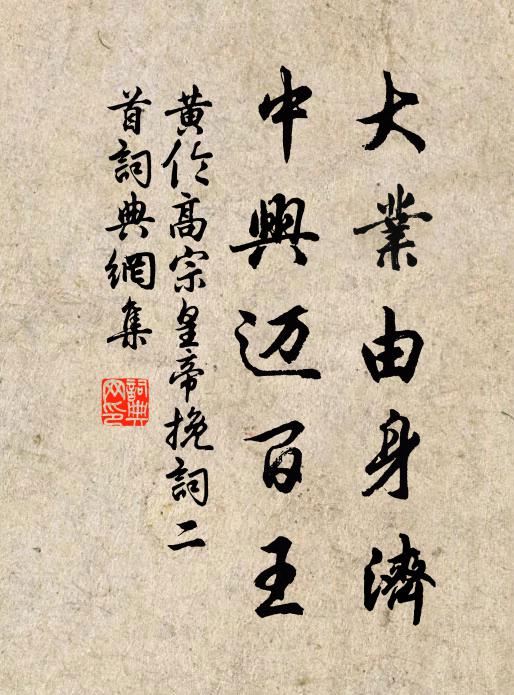 大業由身濟
中興迈百王
黄伦高宗皇帝挽詞二
首詞典網集
詞典
网印